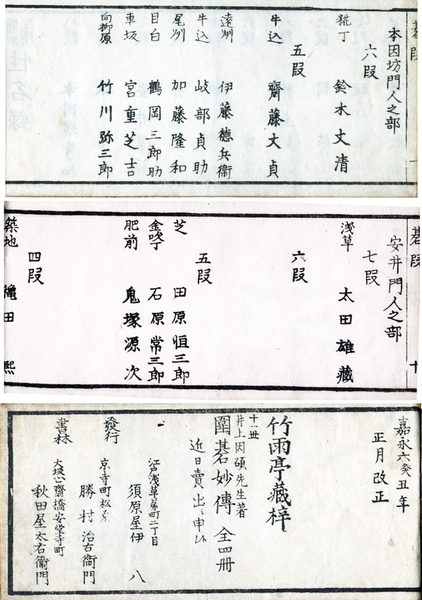 碁段
一
本因坊門人之部
六段
糀丁 鈴木丈清
五段
牛込 齋藤大貞
遠州 伊藤德兵衞
牛込 岐部貞助
尾州 加藤隆和
目白 鶴岡三郎助
車坂 宮重芝吉
向柳原 竹川弥三郎
碁段
十
安井門人之部
七段
浅草 太田雄藏
六段
五段
芝 田原恒三郎
金吹丁 石原常三郎
肥前 鬼塚源次
四段
築地 𥡴田熙
嘉永六癸丑年
正月改正
竹雨亭藏梓
十二世
井上因碩先生著
圍碁妙傳 全四冊
近日賣出シ申候
江戸浅草茅町二丁目
須原屋伊八
發行
京寺町松原
勝村治右衞門
書林
大坂心齋橋安堂寺町
秋田屋太右衞門